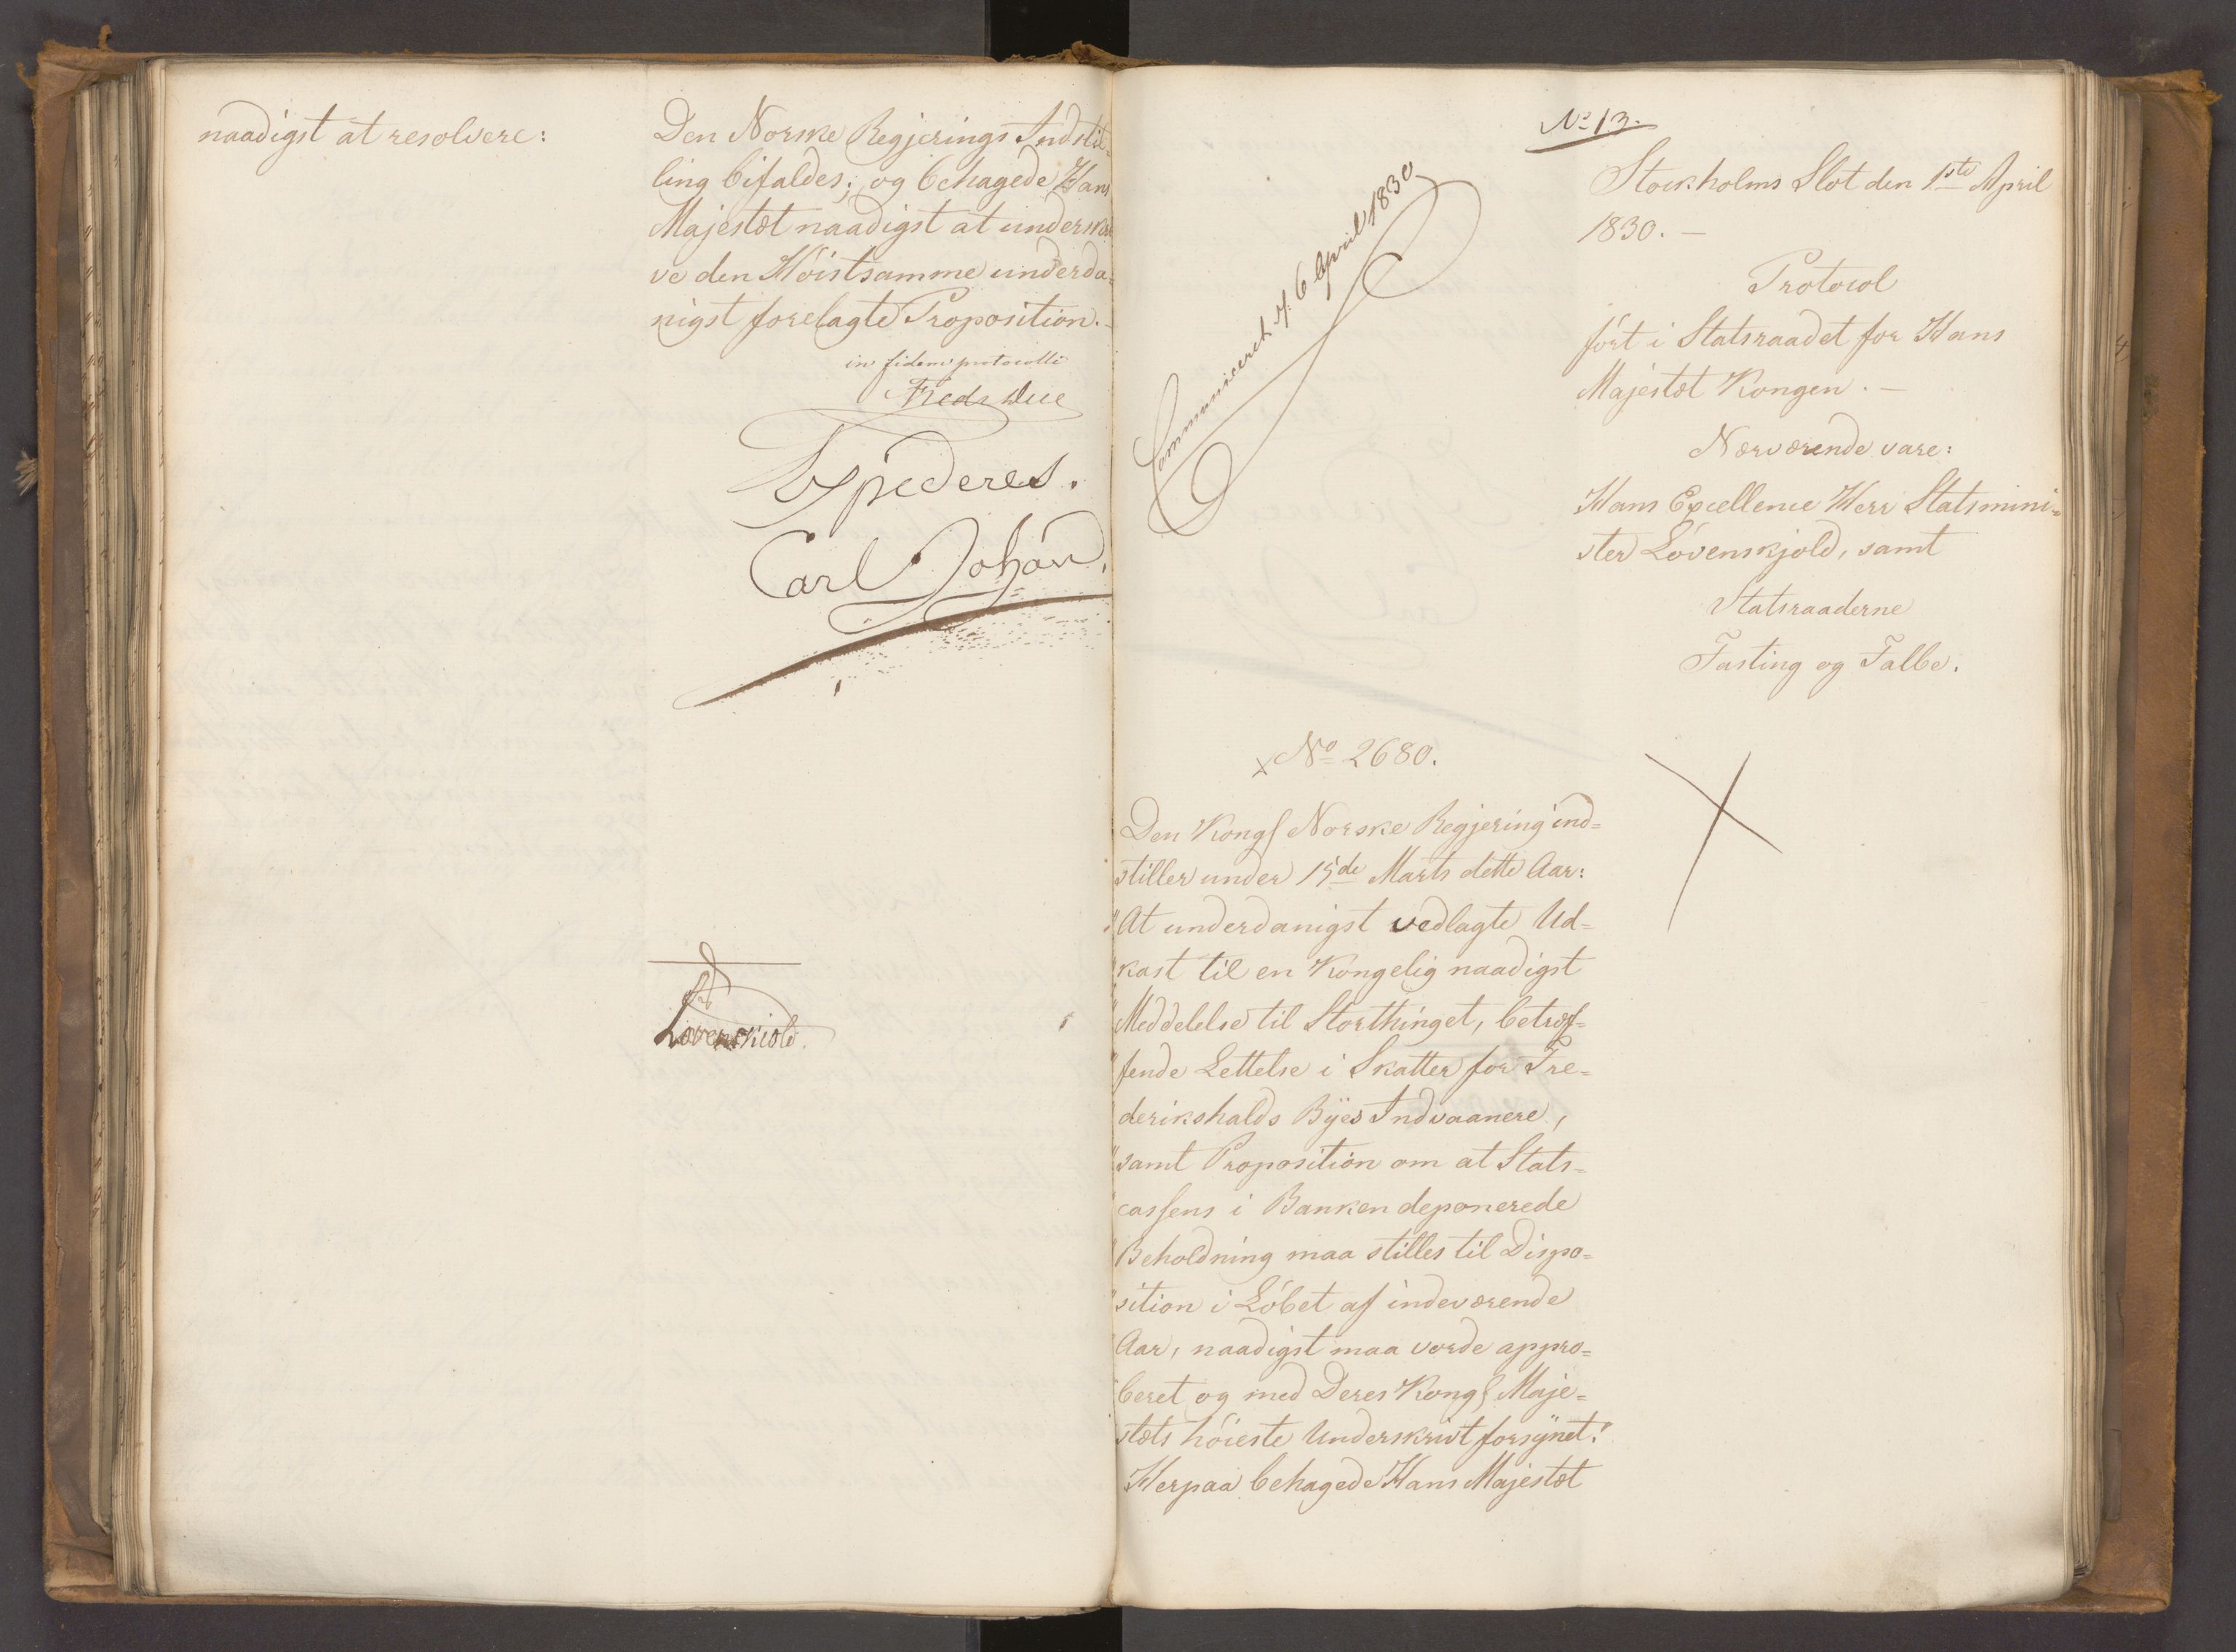 naadigst at resolvere:
Den Norske Regjerings Indstil-
ling bifaldes; og behagede Hans
Majestæt naadigst at underskri
ve den Høistsamme underda-
nigst forelagte Proposition. -
in fidem protocolli
Fredr Due
Expederes.
Carl Johan.
Løvenskiold.
No 13.
Communiceret d. 6 April 1830
Stockholms Slot den 1ste April
1830. -
Protocol
ført i Statsraadet for Hans
Majestæt Kongen. -
Nærværende vare:
Hans Excellence Herr Statsmini-
ster Løvenskjold, samt
Statsraaderne
Fasting og Falbe.
No 2680.
Den Kongl Norske Regjering ind-
stiller under 15de Marts dette Aar:
"At underdanigst vedlagte Ud-
"kast til en Kongelig naadigst
"Meddelelse til Storthinget, betræf-
"fende Lettelse i Skatter for Fre-
"derikshalds Byes Indvaanere,
"samt Proposition om at Stats-
"cassens i Banken deponerede
"Beholdning maa stilles til Dispo-
"sition i Løbet af indeværende
"Aar, naadigst maa vorde appro-
"beret og med Deres Kongl Maje-
"stæts høieste Underskrivt forsynet."
Herpaa behagede Hans Majestæt